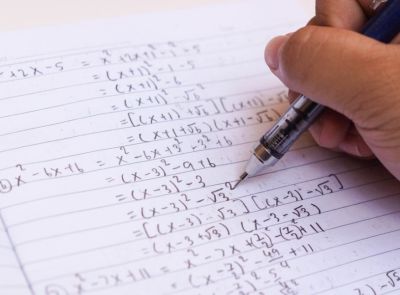 +2x-5 = x²+2x+1²-1²-5
= (x+1)²-1-5
= (x+1)²-6
= (x+1)²-√6²
= [(x+1)+√6][(x+1)-√6
= (x+1+√6)(x+1-√6)
x²-6x+6 = x²-6x+3²-3²+6
= (x-3)²-9+6
= (x-3)²-3
= (x-3)²-√3²
= [(x-3)+√3][(x-3)-√3]
= (x-3+√3)(x-3-√3)
x²-7x+11 = x²-7x+(7/2)²-(7/2)²+11
= (x-7/2)²-49/4+11
= (x-7/2)²-5/4